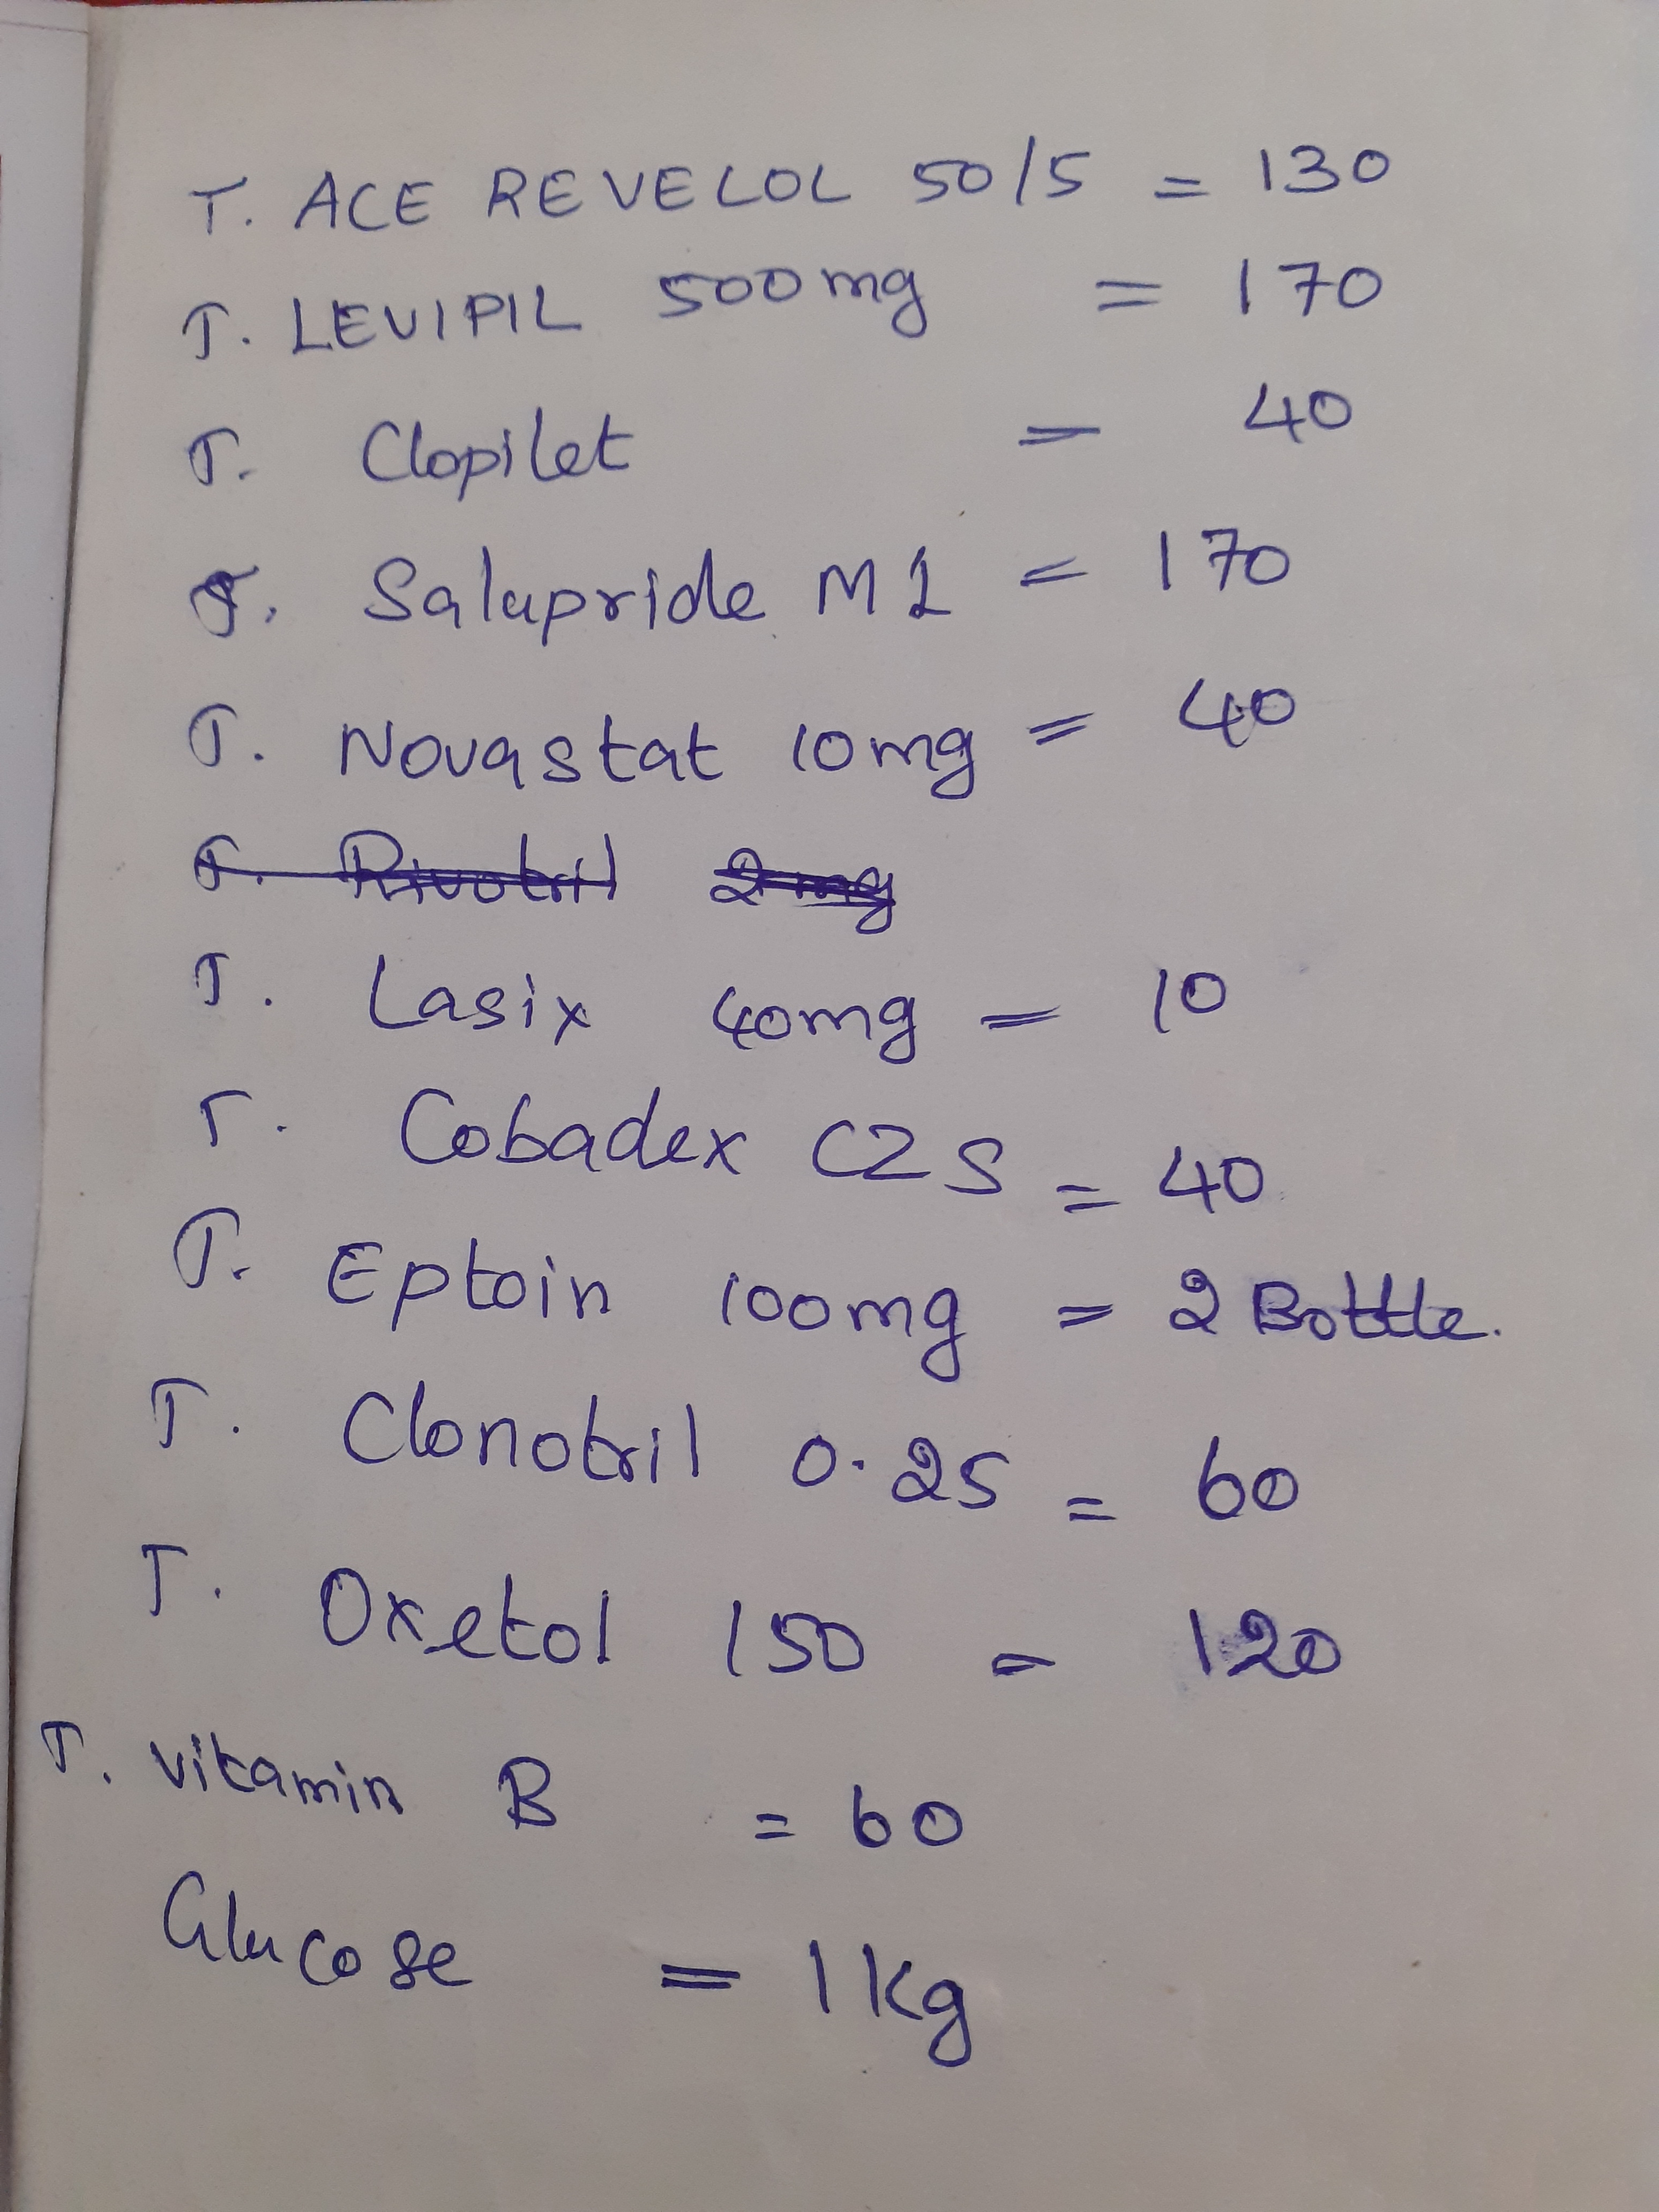 T. ACE REVELOL 50/5 = 130
T. LEVIPIL 500mg = 170
T. Clopilet = 40
T. Salupride M1 = 170
T. Novastat 10mg = 40
T. Rivotril 2mg
T. Lasix 40mg = 10
T. Cobadex CZS = 40
T. Eptoin 100mg = 2 Bottle.
T. Clonotril 0.25 = 60
T. Oxetol 150 = 120
T. Vitamin B = 60
Glucose = 1 kg